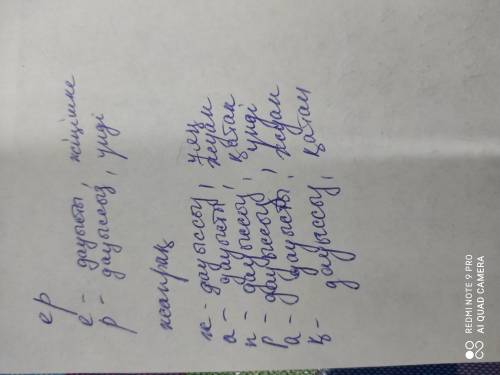 ер
е – дауысты, жіңішке
р – дауыссыз, үнді
жапырақ
ж – дауыссыз, ұяң
а – дауысты, жуан
п – дауыссыз, қатаң
р – дауыссыз, үнді
а – дауысты, жуан
қ – дауыссыз, қатаң
REDMI NOTE 9 PRO
AI QUAD CAMERA